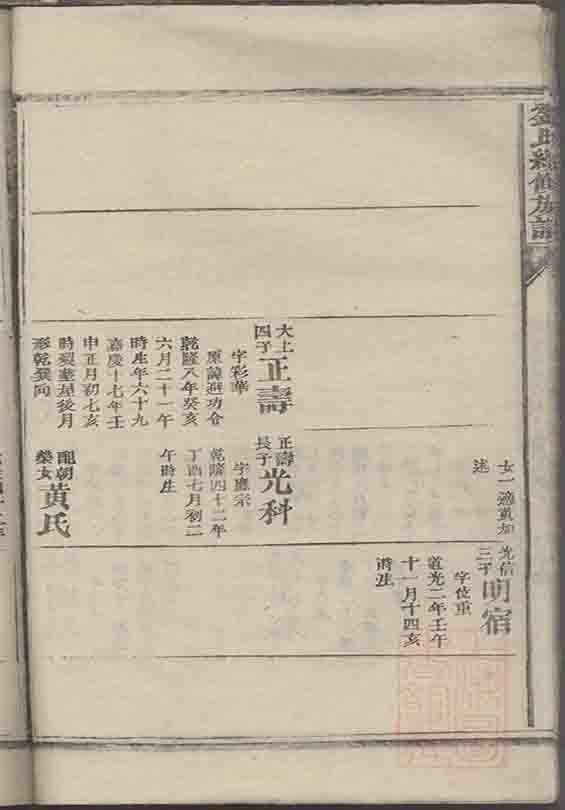 氏修族譜
女一適黃加
述
光信
三子
明宿
字位重
道光二年壬午
十一月十四亥
時生
大士
四子
正壽
字彩華
原諱避功令
乾隆八年癸亥
六月二十一午
時生年六十九
嘉慶十七年壬
申正月初七亥
時歿葬屋後月
形乾巽向
正壽
長子
光科
字應宗
乾隆四十二年
丁酉七月初二
午時生
龍朝
榮女
黃氏